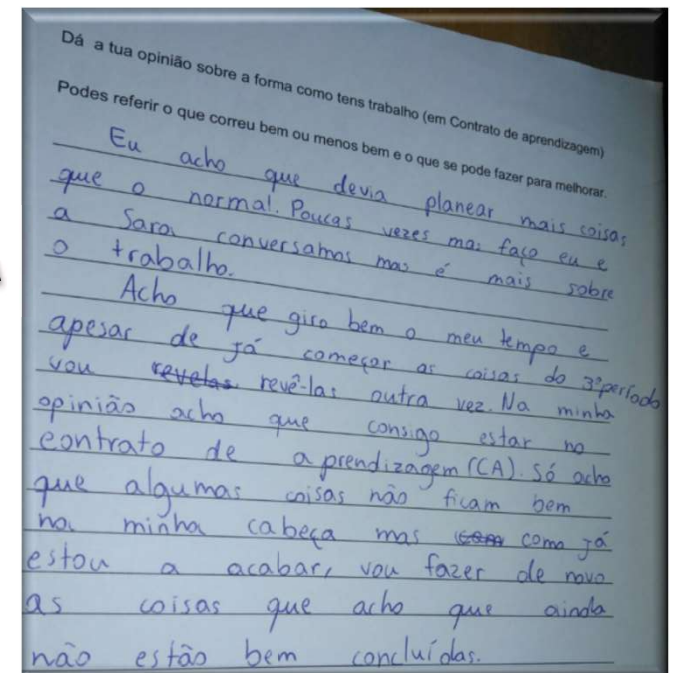 Dá a tua opinião sobre a forma como tens trabalho (em Contrato de aprendizagem)
Podes referir o que correu bem ou menos bem e o que se pode fazer para melhorar.
Eu acho que devia planear mais coisas
que o normal. Poucas vezes mas faço eu e
a Sara conversamos mas é mais sobre
o trabalho.
Acho que giro bem o meu tempo e
apesar de já começar as coisas do 3º período
vou revelas revê-las outra vez. Na minha
opinião acho que consigo estar no
contrato de aprendizagem (CA). Só acho
que algumas coisas não ficam bem
na minha cabeça mas com como já
estou a acabar, vou fazer de novo
as coisas que acho que ainda
não estão bem concluídas.